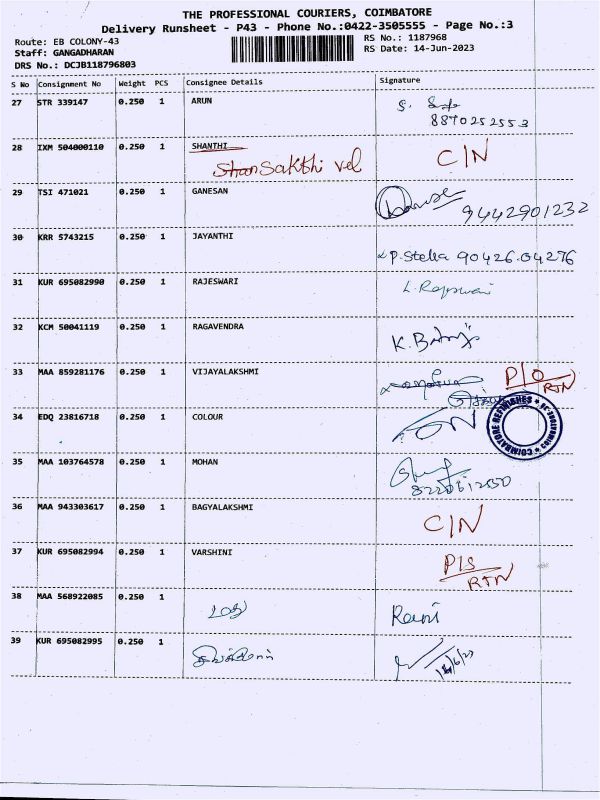 THE PROFESSIONAL COURIERS, COIMBATORE
Delivery Runsheet - P43 - Phone No.:0422-3505555 - Page No.:3
Route: EB COLONY-43 RS No.: 1187968
Staff: GANGADHARAN RS Date: 14-Jun-2023
DRS No.: DCJB118796803
S No Consignment No Weight PCS Consignee Details Signature
27 STR 339147 0.250 1 ARUN
8870252553
28 IXM 504000110 0.250 1 SHANTHI C/N
Shan Sakthi vel
29 TSI 471021 0.250 1 GANESAN
9442901232
30 KRR 5743215 0.250 1 JAYANTHI
P.Stella 90426.04276
31 KUR 695082990 0.250 1 RAJESWARI
32 KCM 50041119 0.250 1 RAGAVENDRA
33 MAA 859281176 0.250 1 VIJAYALAKSHMI P/O
RTN
34 EDQ 23816718 0.250 1 COLOUR
COIMBATORE REFINISHES
35 MAA 103764578 0.250 1 MOHAN
36 MAA 943303617 0.250 1 BAGYALAKSHMI C/N
37 KUR 695082994 0.250 1 VARSHINI P/S
RTN
38 MAA 568922085 0.250 1 Rani
39 KUR 695082995 0.250 1 14/6/23